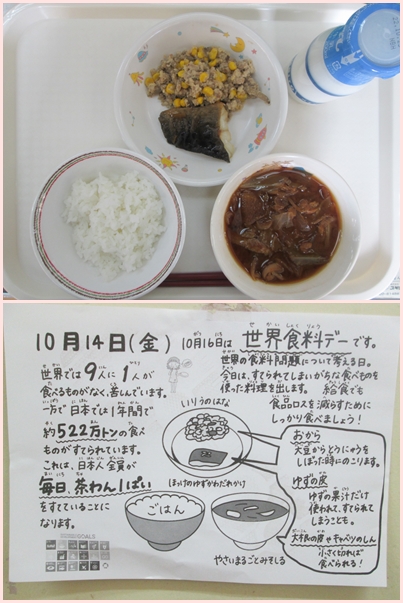 10月14日(金)
10月16日は世界食料デーです。
世界では9人に1人が
食べるものがなく、苦しんでいます。
一方で日本では1年間で
約522万トンの食べ
ものがすてられています。
これは、日本人全員が
毎日、茶わん1ぱい
をすてていることに
なります。
世界の食料問題について考える日。
今日は、すてられてしまいがちな食べものを
使った料理を出します。給食でも
食品ロスを減らすために
しっかり食べましょう!
いりうのはな
ほっけのゆずがわだれかけ
ごはん
やさいまるごとみそしる
おから
大豆からとうにゅうを
しぼった時にのこります。
ゆずの皮
ゆずの果汁だけ
使われ、すてられ
てしまうことも。
大根の皮やキャベツのしん
小さく切れば
食べられる!